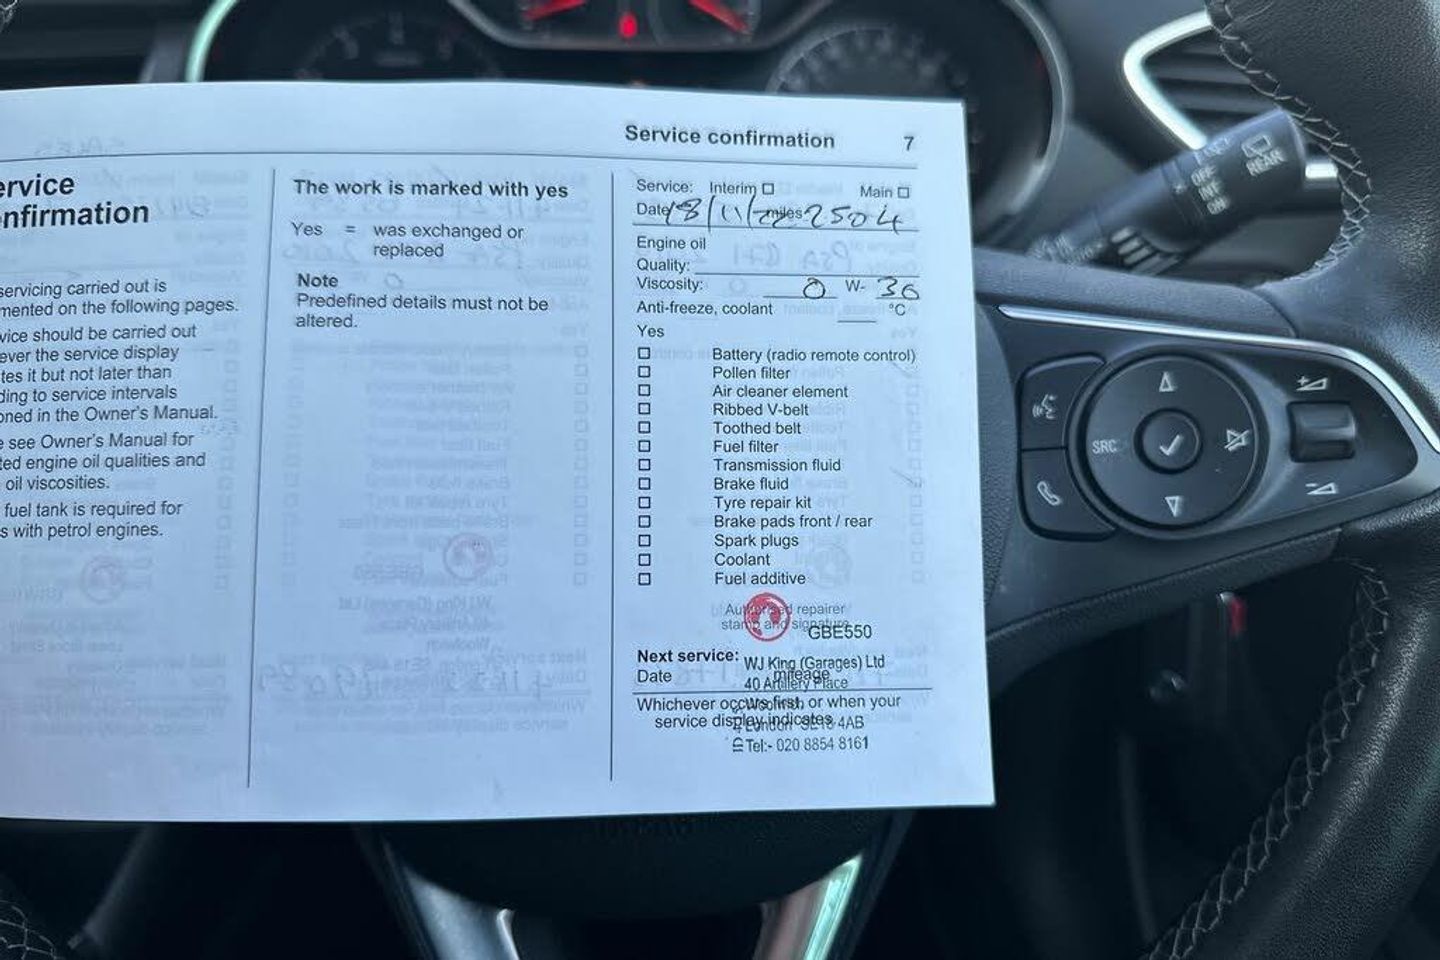 Service confirmation 7
ervice
nfirmation
servicing carried out is
mented on the following pages.
vice should be carried out
ever the service display
tes it but not later than
ding to service intervals
oned in the Owner's Manual.
e see Owner's Manual for
ted engine oil qualities and
oil viscosities.
fuel tank is required for
s with petrol engines.
The work is marked with yes
Yes = was exchanged or
replaced
Note
Predefined details must not be
altered.
Service: Interim ☐ Main ☐
Date 18/11/22 miles 2504
Engine oil
Quality:
Viscosity: 0 W- 30
Anti-freeze, coolant °C
Yes
☐ Battery (radio remote control)
☐ Pollen filter
☐ Air cleaner element
☐ Ribbed V-belt
☐ Toothed belt
☐ Fuel filter
☐ Transmission fluid
☐ Brake fluid
☐ Tyre repair kit
☐ Brake pads front / rear
☐ Spark plugs
☐ Coolant
☐ Fuel additive
Authorised repairer
stamp and signature
GBE550
Next service:
WJ King (Garages) Ltd
Date mileage
40 Artillery Place
Whichever occurs first, or when your
Woolwich
service display indicates.
London SE18 4AB
Tel:- 020 8854 8161
OFF
INT
ON
REAR
SRC